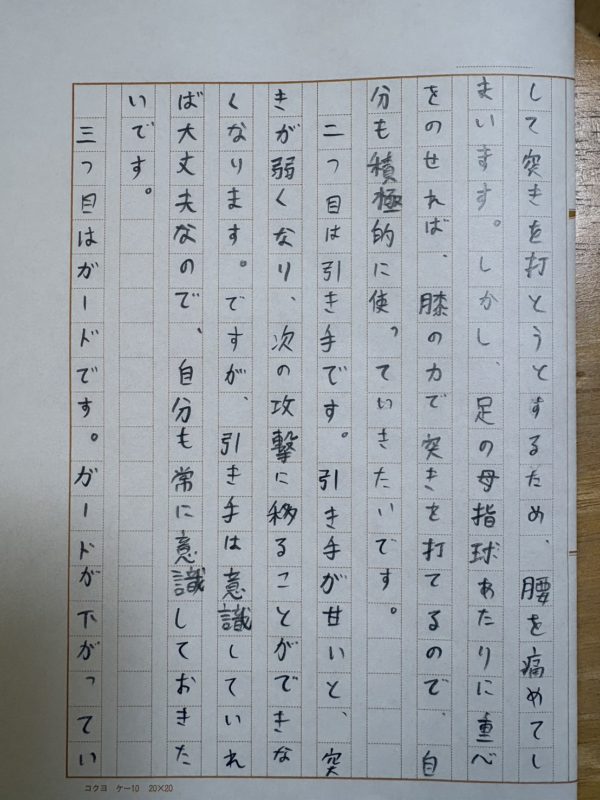 して突きを打とうとするため、腰を痛めてし
まいます。しかし、足の母指球あたりに重べ
をのせれば、膝の力で突きを打てるので、自
分も積極的に使っていきたいです。
二つ目は引き手です。引き手が甘いと、突
きが弱くなり、次の攻撃に移ることができな
くなります。ですが、引き手は意識していれ
ば大丈夫なので、自分も常に意識しておきた
いです。
三つ目はガードです。ガードが下がってい
コクヨ ケー10 20×20